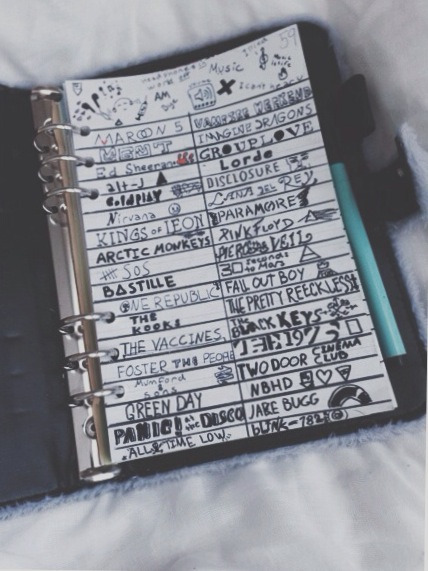 59
Music
AM
MAROON 5
Ed Sheeran
alt-J
Coldplay
Nirvana
KINGS OF LEON
ARCTIC MONKEYS
SOS
BASTILLE
ONE REPUBLIC
THE
KOOKS
THE VACCINES
FOSTER THE PEOPLE
Mumford
sons
GREEN DAY
PANIC! at the DISCO
ALL TIME LOW
VAMPIRE WEEKEND
IMAGINE DRAGONS
GROUPLOVE
Lorde
DISCLOSURE
LANA DEL REY
PARAMORE
PINK FLOYD
PIERCE THE VEIL
30 Seconds
to Mars
FALL OUT BOY
THE PRETTY RECKLESS
BLACK KEYS
THE 1975
TWO DOOR CINEMA
CLUB
NBHD
JAKE BUGG
blink-182